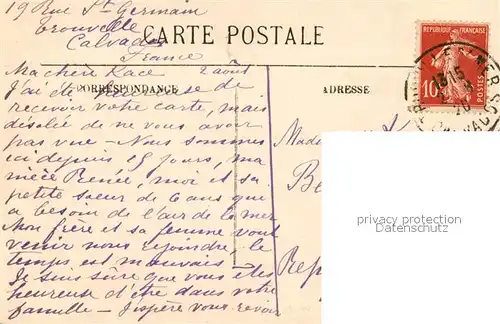 19 Rue St Germain
Trouville
Calvados
France
CARTE POSTALE
REPUBLIQUE FRANÇAISE
10
POSTES
13 15
20
CORRESPONDANCE
ADRESSE
Ma chère Kace 2 août
J'ai été heureuse de
recevoir votre carte, mais
désolée de ne vous avoir
pas vue - Nous sommes
ici depuis 15 jours, ma
nièce Renée, moi et sa
petite soeur de 6 ans qui
a besoin de l'air de la mer
Mon frère et sa femme vont
venir nous rejoindre. le
temps est mauvais
Je suis sûre que vous êtes
heureuse d'être dans votre
famille - J'espère vous revoir
Mada
Be
Rep
privacy protection
Datenschutz